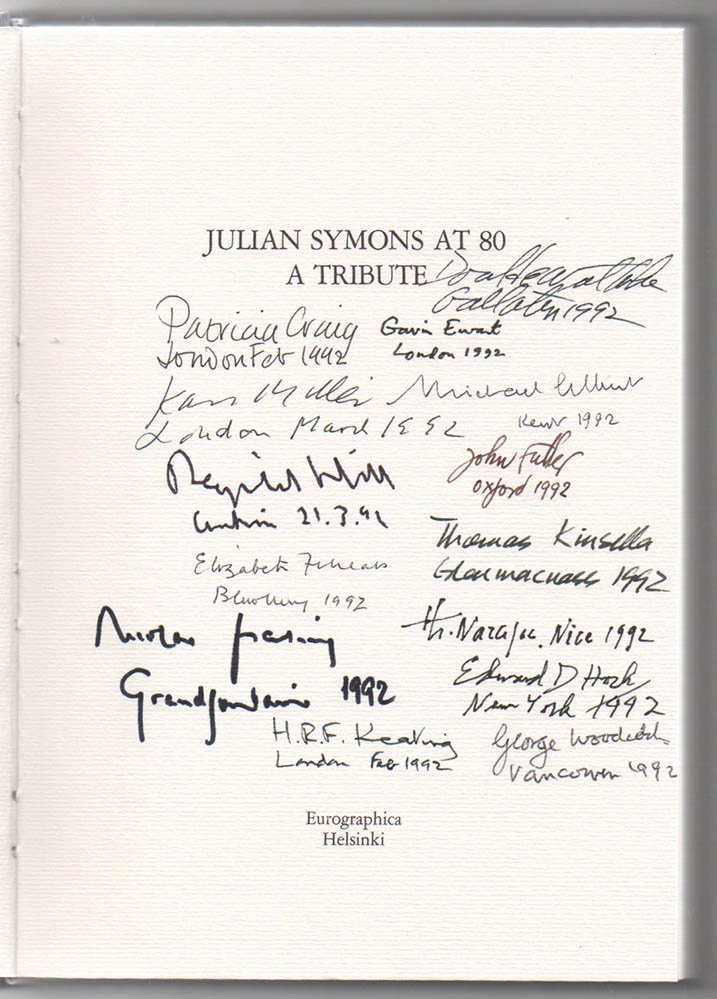 JULIAN SYMONS AT 80
A TRIBUTE
Gallatin 1992
Patricia Craig
London Feb 1992
Gavin Ewart
London 1992
Karl Miller
London March 1992
Michael Gilbert
Kent 1992
Reginald Hill
Cumbria 21.3.92
John Fuller
Oxford 1992
Elizabeth Ferrars
Blewbury 1992
Thomas Kinsella
1992
Nicolas Freeling
Grandfontaine 1992
Th. Narcejac, Nice 1992
Edward D Hoch
New York 1992
H.R.F. Keating
London Feb 1992
George Woodcock
Vancouver 1992
Eurographica
Helsinki